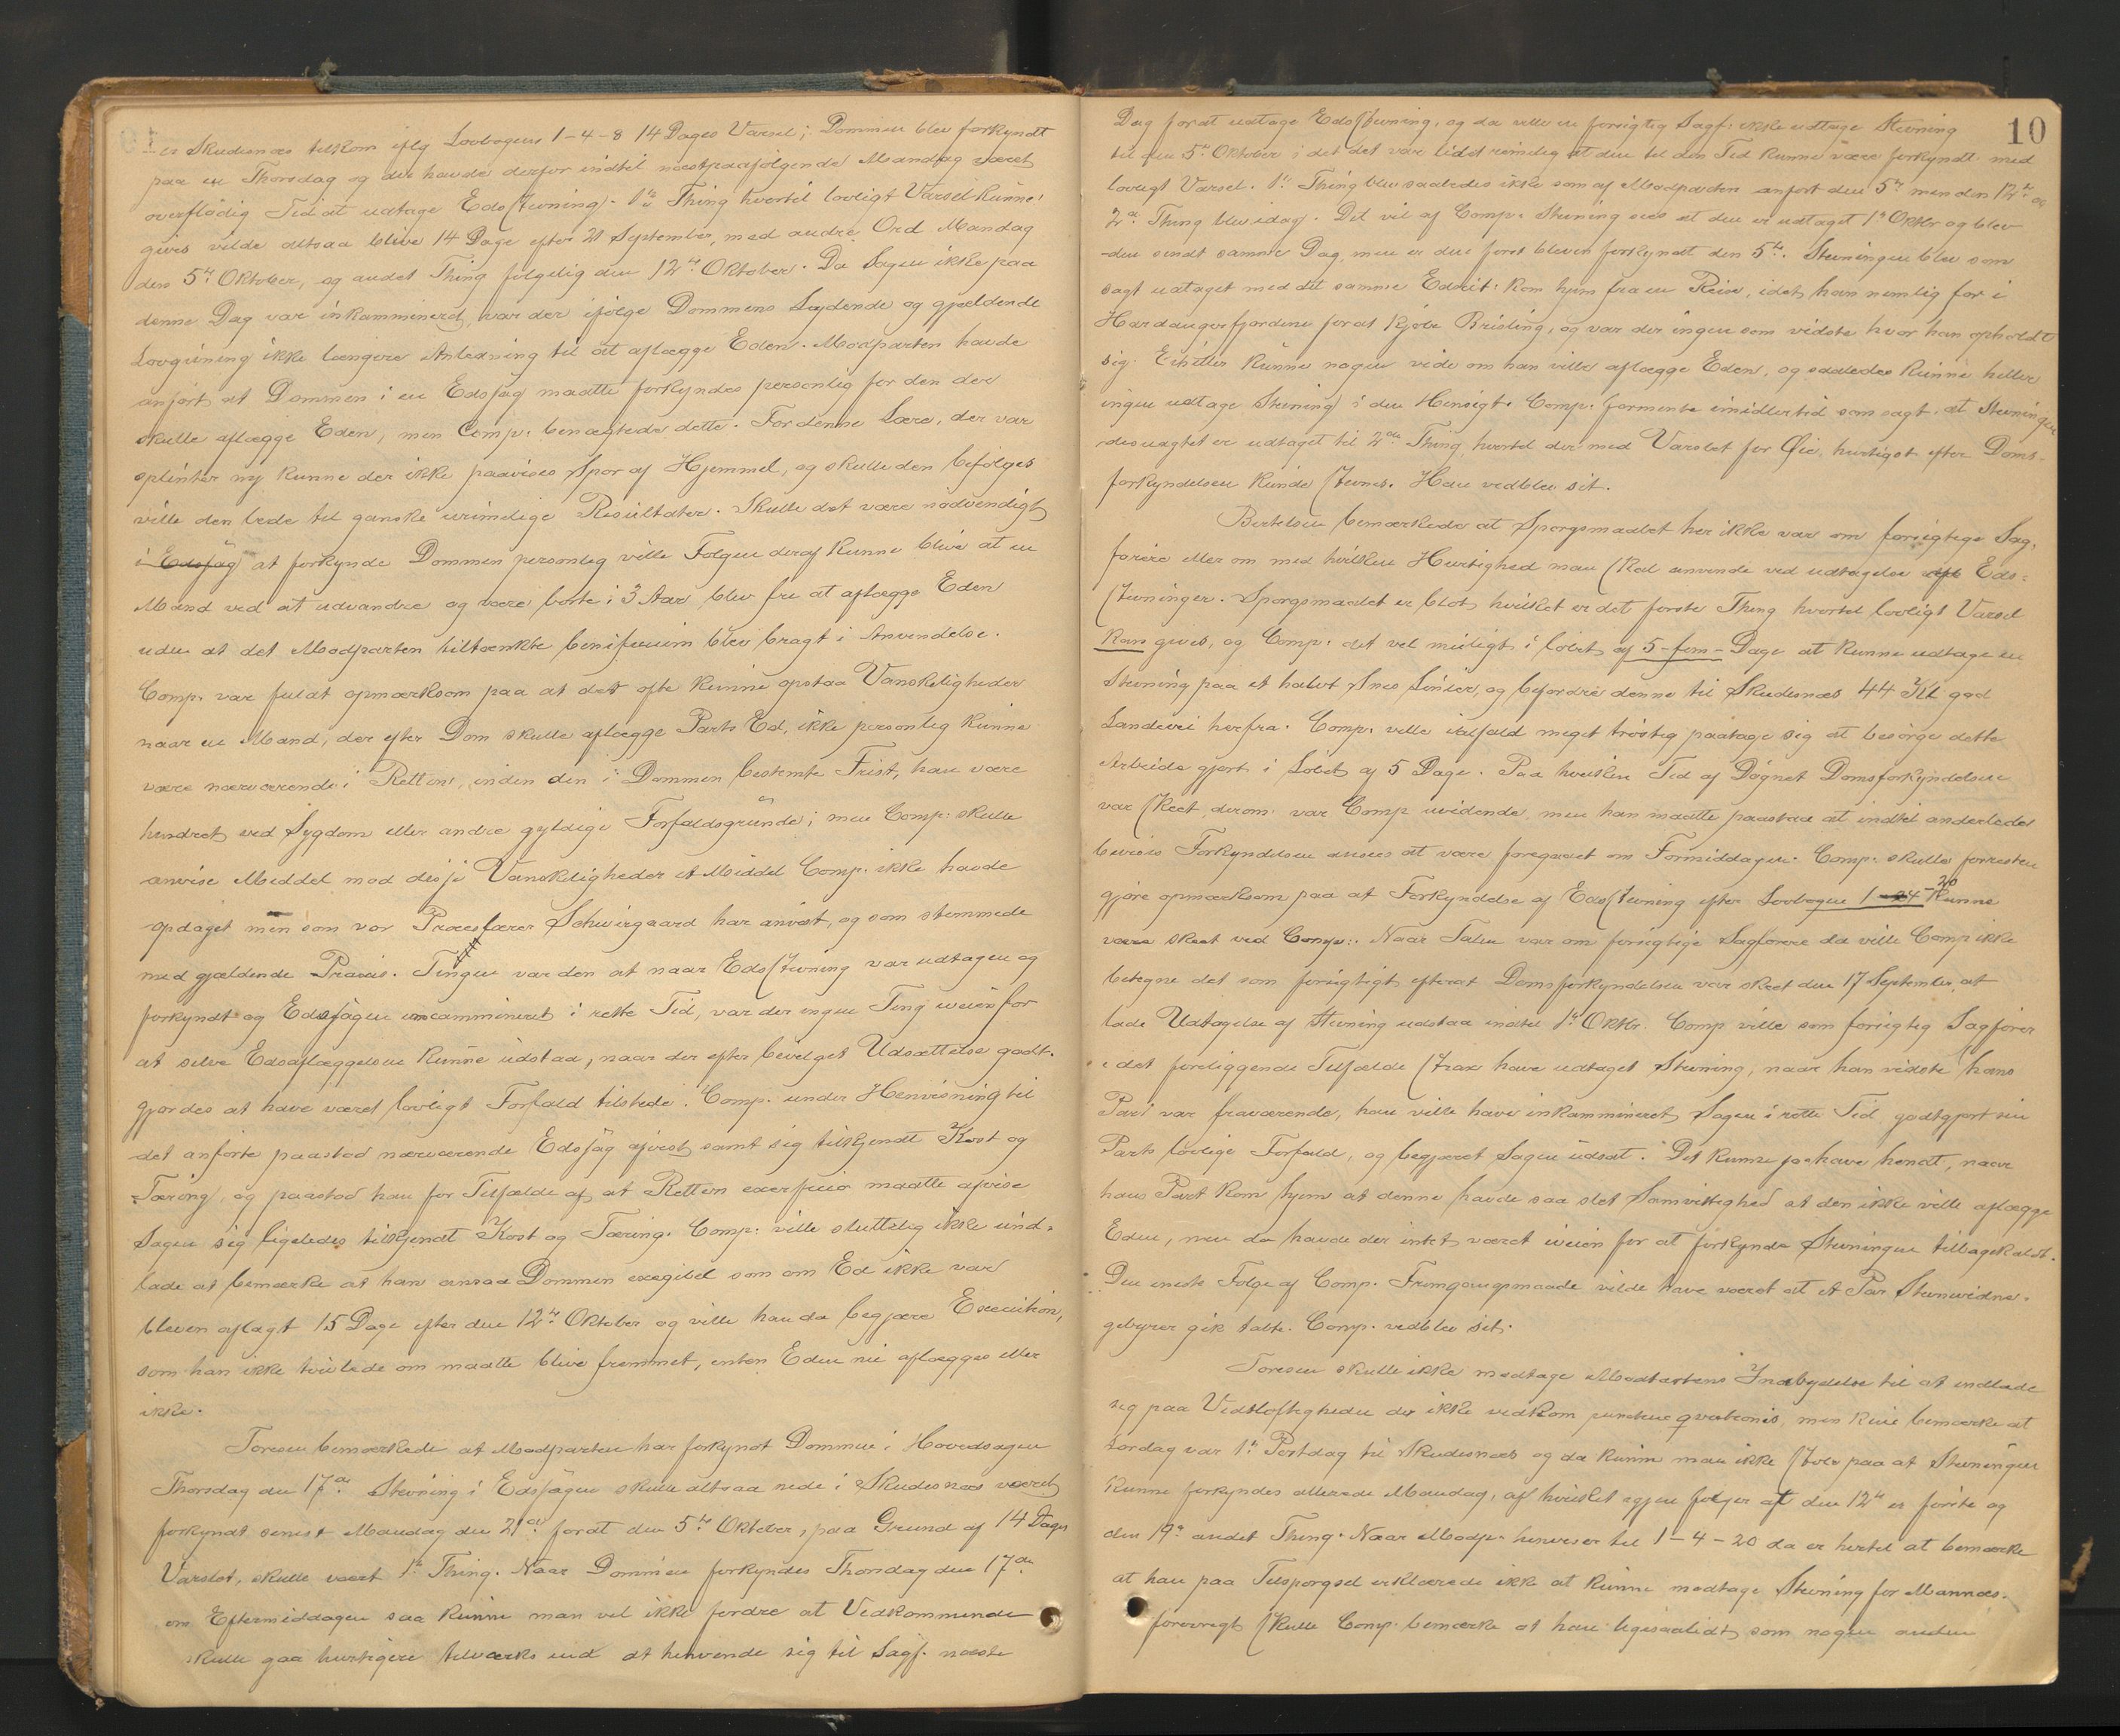 er Skudesnæs tilkom iflg Lovbogens 1-4-8 14 Dages Varsel; Dommen blev forkyndt
paa en Thorsdag og der havde derfor indtil næstpaafølgende Mandag været
overflödig Tid at udtage Edsstevning. 1ste Thing hvortil lovligt Varsel kunne
gives vilde altsaa blive 14 Dage efter 21 September, med andre Ord Mandag
den 5te Oktober, og andet Thing følgelig den 12te Oktober. Da Sagen ikke paa
denne Dag var inkamminered, var der ifølge Dommens Lydende og gjældende
Lovgivning ikke længere Anledning til at aflægge Eden. Modparten havde
anført at Dommen i en Edssag maatte forkyndes personlig for den der
skulle aflægge Eden, men Comp. benægtede dette. For denne Lære, der var
splinter ny kunne der ikke paavises Spor af Hjemmel, og skulle den befølges
ville den lede til ganske urimelige Resultater. Skulle det være nödvendigt
i Edssag at forkynde Dommen personlig ville Følgen deraf kunne blive at en
Mand ved at udvandre og være borte i 3 Aar blev fri at aflægge Eden
uden at det Modparten tiltænkte benificium blev bragt i Anvendelse.
Comp. var fuldt opmærksom paa at det ofte kunne opstaa Vanskeligheder
naar en Mand, der efter Dom skulle aflægge Parts Ed, ikke personlig kunne
være nærværende i Retten, inden den i Dommen bestemte Frist, han være
hindret ved Sygdom eller andre gyldige Forfaldsgründe; men Comp. skulle
anvise Middel mod disse Vanskeligheder et Middel Comp. ikke havde
opdaget men som vor Procesfører Schweigaard har anvist, og som stemmede
med gjældende Praxis. Tingen var den at naar Edsstevning var udtagen og
forkyndt og Edssagen incammineret i rette Tid, var der ingen Ting iveien for
at selve Edsaflæggelsen kunne udstaa, naar der efter bevilget Udsættelse godt-
gjordes at have været lovligt Forfald tilstede. Comp. under Henvisning til
det anførte paastod nærværende Edssag afvist samt sig tilkjendt Kost og
Tæring, og paastod han for Tilfælde af at Retten ex officio maatte afvise
Sagen sig ligeledes tilkjendt Kost og Tæring. Comp. ville sluttelig ikke und-
lade at bemærke at han ansaa Dommen exegibel som om Ed ikke var
bleven aflagt 15 Dage efter den 12te Oktober og ville han da begjære Execution,
som han ikke tvivlede om maatte blive fremmet, enten Eden nu aflægges eller
ikke.
Toresen bemærkede at Modparten har forkyndt Dommen i Hovedsagen
Thorsdag den 17de Stevning i Edssagen skulle altsaa nede i Skudesnæs været
forkyndt senest Mandag den 21de fordt den 5te Oktober, paa Grund af 14 Dages
Varslet, skulle været 1ste Thing. Naar Dommen forkyndes Thorsdag den 17de
om Eftermiddagen saa kunne man vel ikke fordre at Vedkommende
skulle gaa hurtigere tilværks end at henvende sig til Sagf. næste
10
Dag for at udtage Edsstevning, og da ville en forsigtig Sagf. ikke udtage Stevning
til den 5te Oktober i det det var lidet rimelig at den til den Tid kunne være forkyndt med
lovligt Varsel. 1ste Thing blev saaledes ikke som af Modparten anført den 5te men den 12te og
2det Thing blev idag. Det vil af Comp. Stevning sees at den er udtaget 1ste Oktbr og blev
den sendt samme Dag, men er den først bleven forkyndt den 5te. Stevningen blev som
sagt udtaget med det samme Edscit. kom hjem fra en Reise, idet han nemlig for i
Hardangerfjorden for at kjøbe Brisling, og var der ingen som vidste hvor han opholdt
sig. Eiheller kunne nogen vide om han ville aflægge Eden, og saaledes kunne heller
ingen udtage Stevning i den Hensigt. Comp. formente imidlertid som sagt at Stevningen
desuagtet er udtaget til 2det Thing, hvortil der med Varslet for Øie, hurtigst efter Doms-
forkyndelsen kunde stevnes. Han vedblev sit.
Bertelsen bemærkede at Spørgsmaalet her ikke var om forsigtige Sag-
førere eller om med hvilken Hurtighed man skal anvende ved udtagelse af Eds-
stevninger. Spørgsmaalet er blot, hvilket er det første Thing hvortil lovligt Varsel
kan gives, og Comp. det vel muligt i løbet af 5-fem-Dage at kunne udtage en
Stevning paa et halvt Snes Linier, og befordre denne til Skudesnæs 44 Kil. god
Landevei herfra. Comp. ville ialfald meget tröstig paatage sig at besörge dette
Arbeide gjort i Løbet af 5 Dage. Paa hvilken Tid af Døgnet Domsforkyndelsen
var skeet, derom var Comp uvidende, men han maatte paastaa at indtil anderledes
bevises Forkyndelsen ansees at være foregaaet om Formiddagen. Comp. skulle forresten
gjøre opmærksom paa at Forkyndelse af Edsstevning efter Lovbogen 1-4-20 kunne
være skeet ved Comp. Naar Talen var om forsigtige Sagførere da ville Comp ikke
betegne det som forsigtigt, efterat Domsforkyndelsen var skeet den 17 September, at
lade Udtagelse af Stevning udstaa indtil 1ste Oktbr. Comp ville som forsigtig Sagfører
i det foreliggende Tilfælde strax have udtaget Stevning, naar han vidste hans
Part var fraværende, han ville have inkammineret Sagen i rette Tid godtgjort sin
Parts lovlige Forfald, og begjæret Sagen udsat. Det kunne jo have hendt, naar
hans Part kom hjem at denne havde saa slet Samvittighed at den ikke ville aflægge
Eden, men da havde der intet været iveien for at forkynde Stevningen tilbagekaldt.
Den eneste Følge af Comp. Fremgangsmaade vilde have været at et Par Stevnevidne-
gebyrer gik tabte. Comp. vedblev sit.
Toresen skulle ikke modtage Modpartens Indbydelse til at indlade
sig paa Vidtløftigheder der ikke vedkom punctum qvestionis, men kun bemærke at
Lørdag var 1ste Postdag til Skudesnæs og da kunne man ikke stole paa at Stevningen
kunne forkyndes allerede Mandag, af hvilket igjen følger at den 12te er første og
den 19de andet Thing. Naar Modp. henviser til 1-4-20 da er hertil at bemærke
at han paa Tilspørgsel erklærede ikke at kunne modtage Stevning for Mannes.
forøvrigt skulle Comp. bemærke at han ligesaalidt som nogen anden